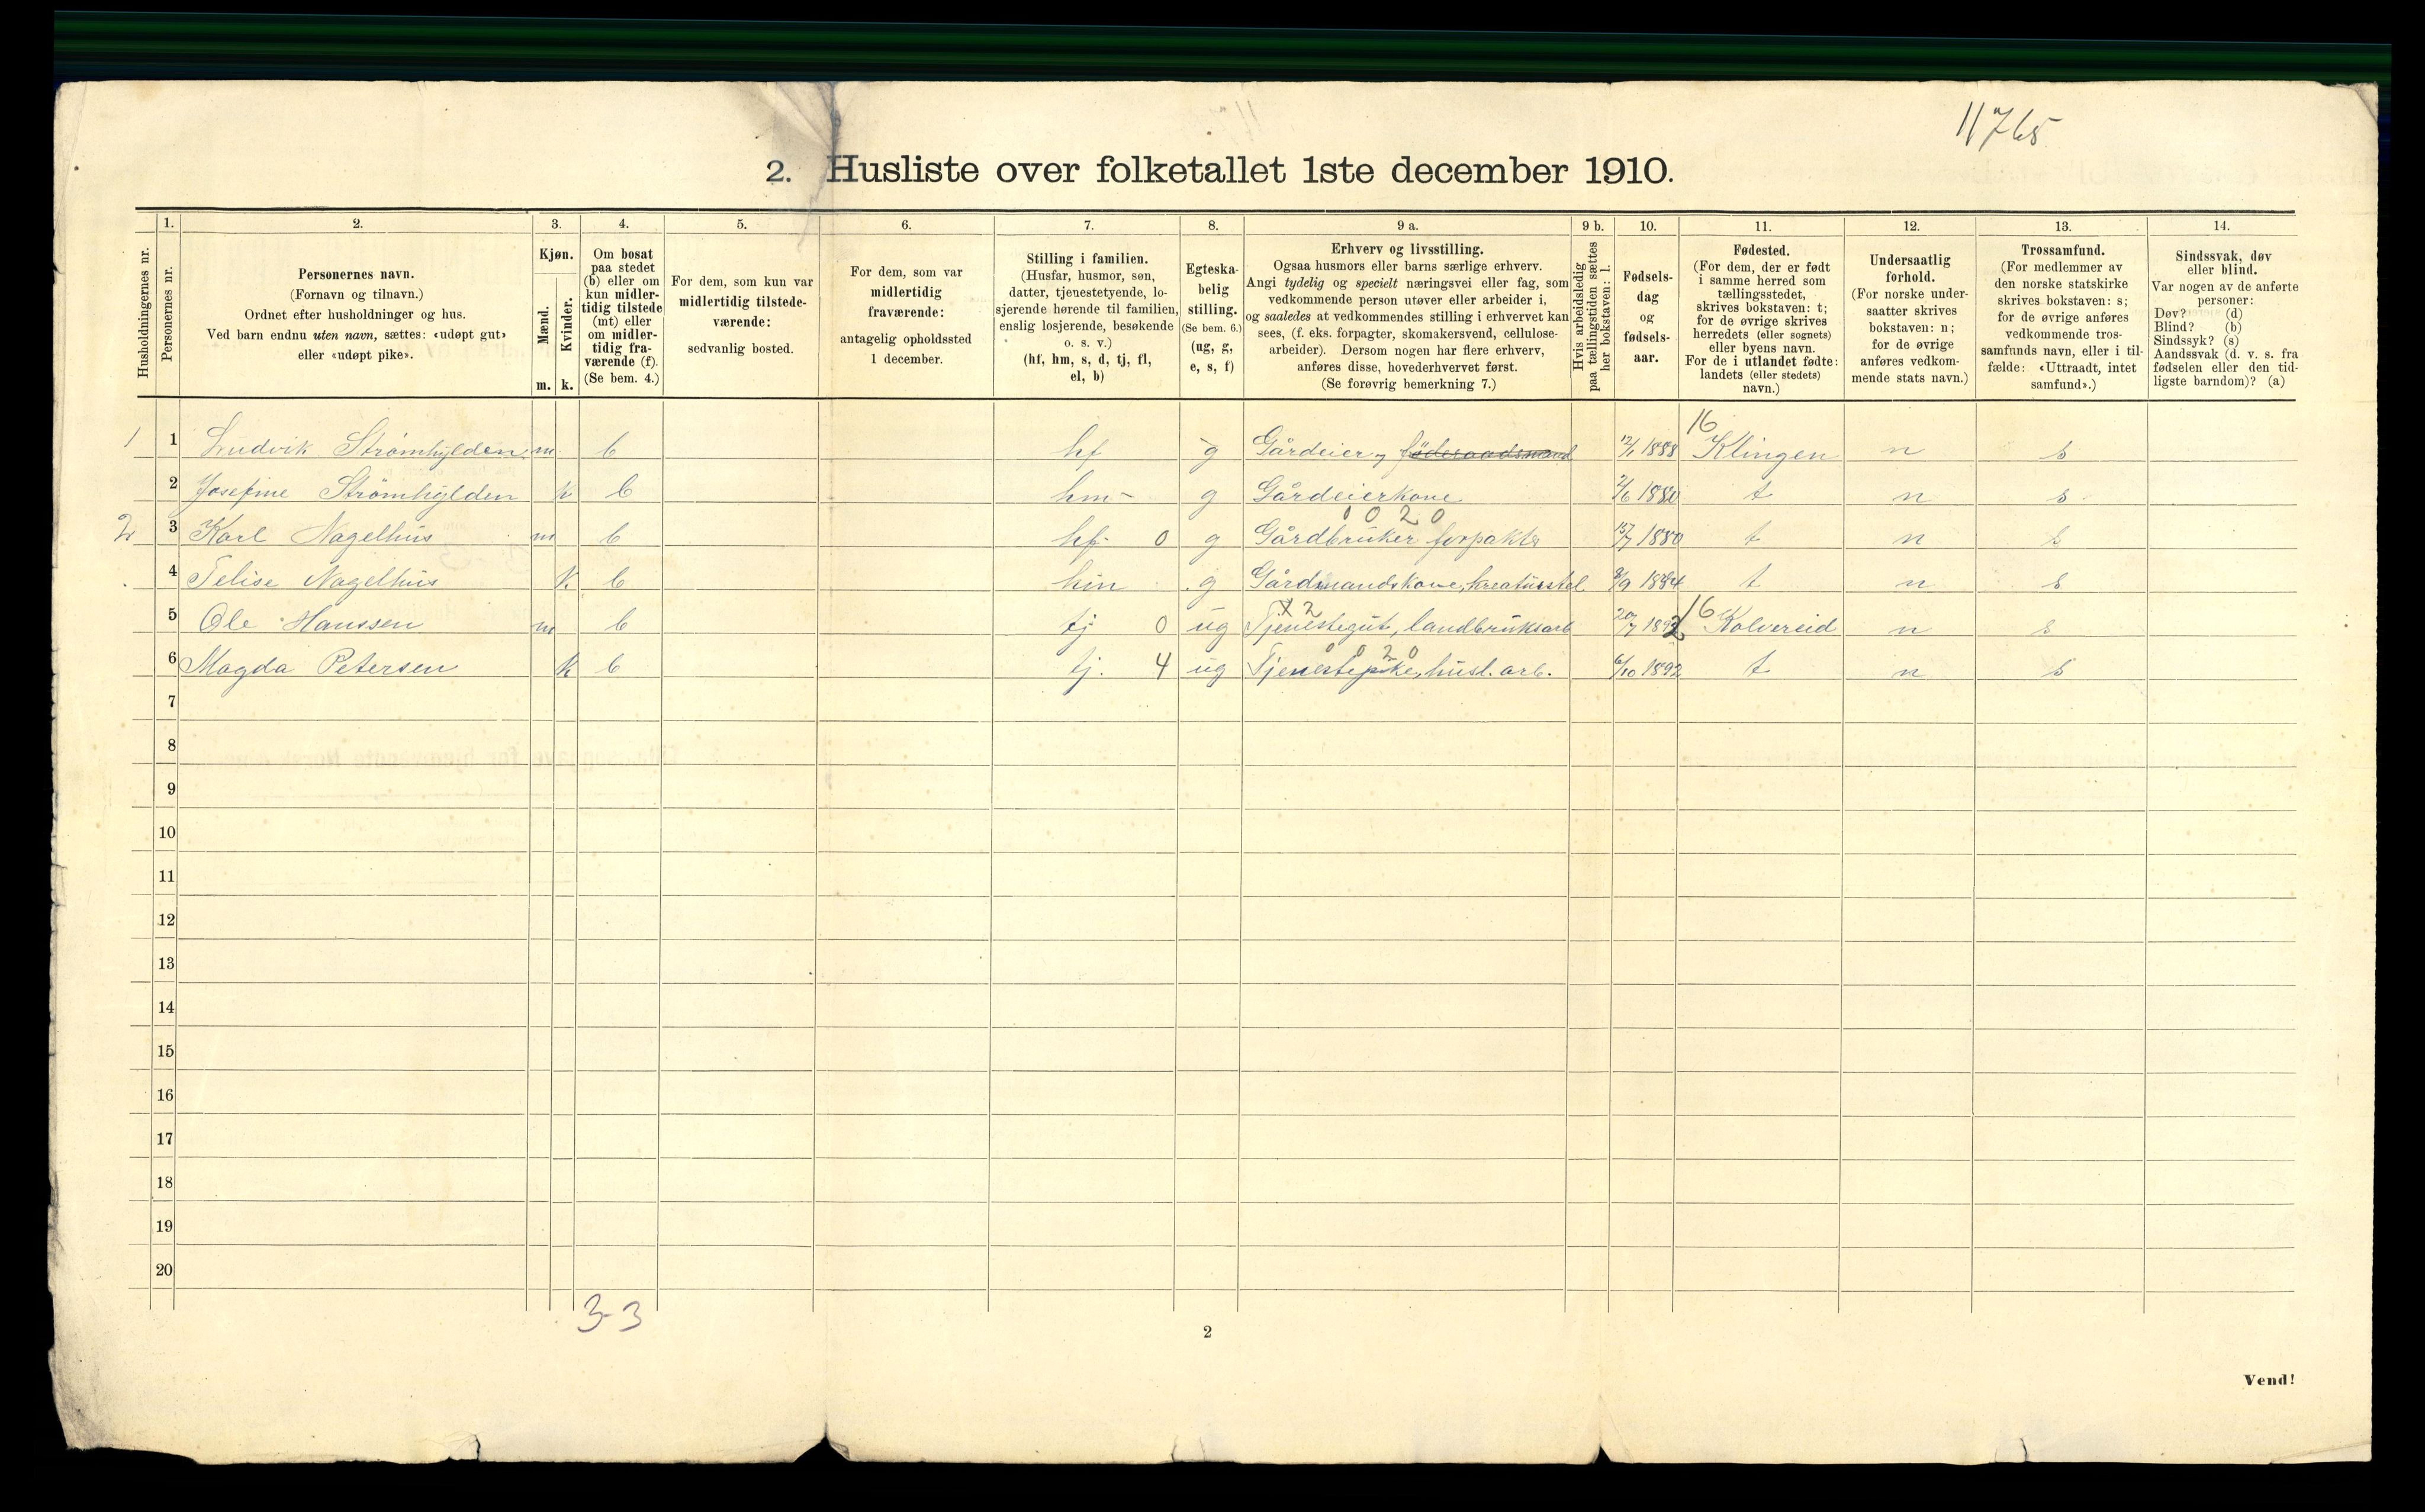 11765
2. Husliste over folketallet 1ste december 1910.
Husholdningernes nr.
1.
Personernes nr.
2.
Personernes navn.
(Fornavn og tilnavn.)
Ordnet efter husholdninger og hus.
Ved barn endnu uten navn, sættes: «udøpt gut»
eller «udøpt pike».
3.
Kjøn.
Mænd.
m.
Kvinder.
k.
4.
Om bosat
paa stedet
(b) eller om
kun midler-
tidig tilstede
(mt) eller
om midler-
tidig fra-
værende (f).
(Se bem. 4.)
5.
For dem, som kun var
midlertidig tilstede-
værende:
sedvanlig bosted.
6.
For dem, som var
midlertidig
fraværende:
antagelig opholdssted
1 december.
7.
Stilling i familien.
(Husfar, husmor, søn,
datter, tjenestetyende, lo-
sjerende hørende til familien,
enslig losjerende, besøkende
o. s. v.)
(hf, hm, s, d, tj, fl,
el, b)
8.
Egteska-
belig
stilling.
(Se bem. 6.)
(ug, g,
e, s, f)
9 a.
Erhverv og livsstilling.
Ogsaa husmors eller barns særlige erhverv.
Angi tydelig og specielt næringsvei eller fag, som
vedkommende person utøver eller arbeider i,
og saaledes at vedkommendes stilling i erhvervet kan
sees, (f. eks. forpagter, skomakersvend, cellulose-
arbeider). Dersom nogen har flere erhverv,
anføres disse, hovederhvervet først.
(Se forøvrig bemerkning 7.)
9 b.
Hvis arbeidsledig
paa tællingstiden sættes
her bokstaven: l.
10.
Fødsels-
dag
og
fødsels-
aar.
11.
Fødested.
(For dem, der er født
i samme herred som
tællingsstedet,
skrives bokstaven: t;
for de øvrige skrives
herredets (eller sognets)
eller byens navn.
For de i utlandet fødte:
landets (eller stedets)
navn.)
12.
Undersaatlig
forhold.
(For norske under-
saatter skrives
bokstaven: n;
for de øvrige
anføres vedkom-
mende stats navn.)
13.
Trossamfund.
(For medlemmer av
den norske statskirke
skrives bokstaven: s;
for de øvrige anføres
vedkommende tros-
samfunds navn, eller i til-
fælde: «Uttraadt, intet
samfund».)
14.
Sindssvak, døv
eller blind.
Var nogen av de anførte
personer:
Døv? (d)
Blind? (b)
Sindssyk? (s)
Aandssvak (d. v. s. fra
fødselen eller den tid-
ligste barndom)? (a)
16
1 1 Ludvik Strømhylden m b hf g Gårdeier, föderaadsmand 12/1 1888 Klingen n s
2 Josefine Strømhylden k b hm g Gårdeierkone 2/6 1880 t n s
0 0 2 0
2 3 Karl Nagelhus m b hf 0 g Gårdbruker forpakter 15/7 1880 t n s
4 Telise Nagelhus k b hm g Gårdmandskone, kreaturstel 8/9 1884 t n s
X 2 16
5 Ole Hanssen m b tj 0 ug Tjenestegut, landbruksarb 20/7 1892 Kolvereid n s
0 0 2 0
6 Magda Petersen k b tj. 4 ug Tjenestepike, husl. arb. 6/10 1892 t n s
7
8
9
10
11
12
13
14
15
16
17
18
19
20
3-3
2
Vend!